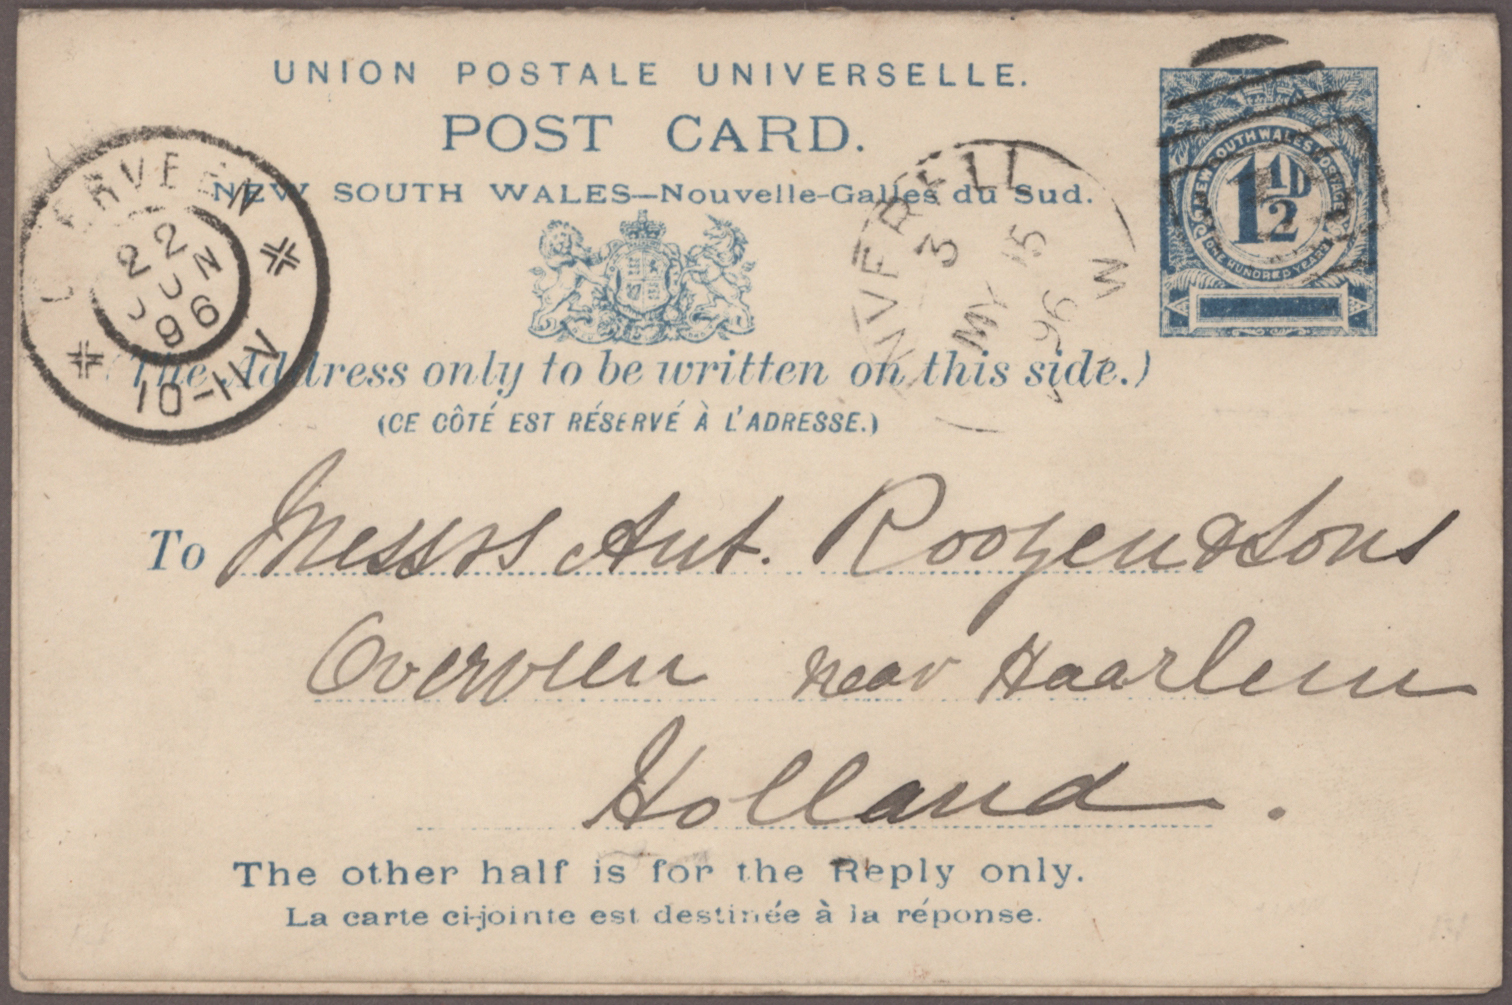 UNION POSTALE UNIVERSELLE.
POST CARD.
NEW SOUTH WALES—Nouvelle-Galles du Sud.
NEW SOUTH WALES POSTAGE
1½D
ONE HUNDRED YEARS
INVERELL
3
MY 15
96
OVERVEEN
22
JUN
96
10-11V
(The Address only to be written on this side.)
(CE CÔTÉ EST RÉSERVÉ À L'ADRESSE.)
To Messrs Ant. Roozen & Sons
Overveen near Haarlem
Holland.
The other half is for the Reply only.
La carte ci-jointe est destinée à la réponse.